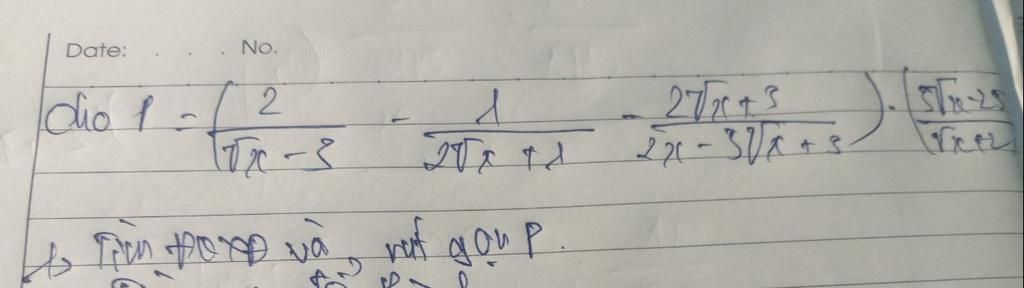 Date: . . . . No.
Cho P = (2/(√x - 3) - 1/(2√x + 1) - (2√x + 3)/(2x - 3√x + 3)) · (5√x - 25)/(√x + 2)
Tìm ĐKXĐ và rút gọn P.